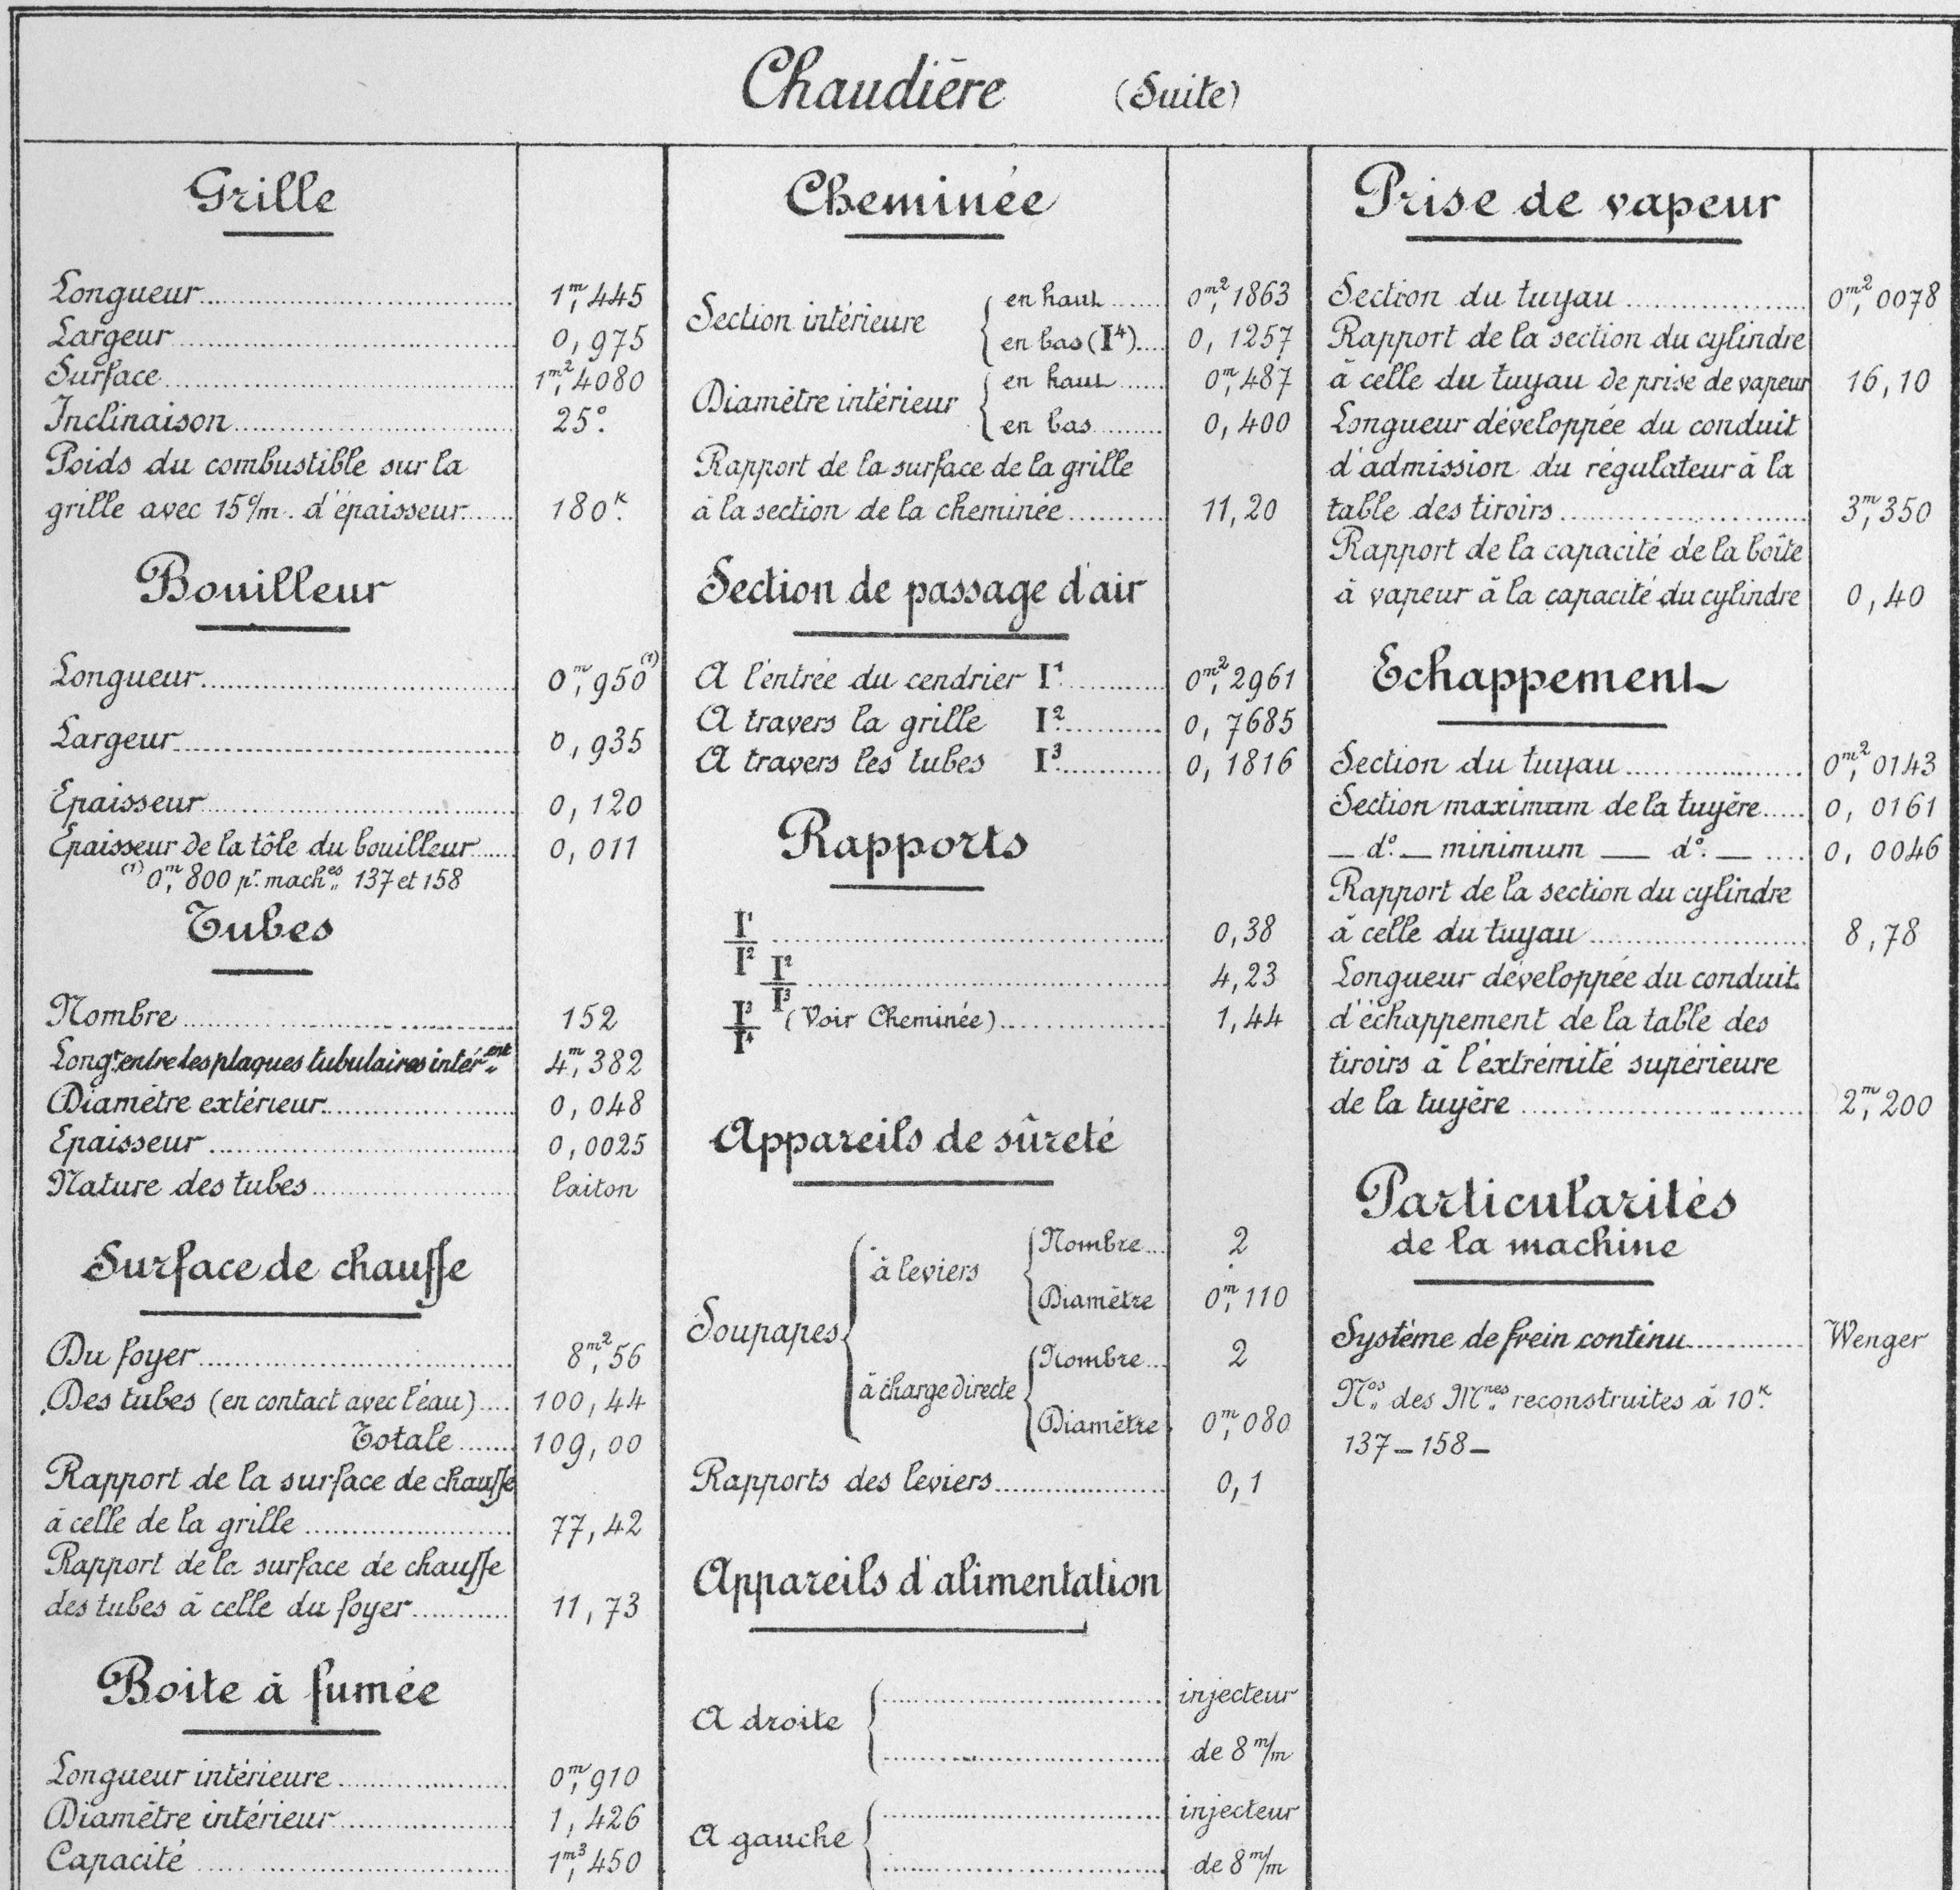 Chaudière (Suite)
Grille
Longueur 1m,445
Largeur 0,975
Surface 1m²,4080
Inclinaison 25°.
Poids du combustible sur la
grille avec 15c/m. d'épaisseur 180k.
Bouilleur
Longueur 0m,950(1)
Largeur 0,935
Epaisseur 0,120
Epaisseur de la tôle du bouilleur 0,011
(1) 0m,800 pr. maches. 137 et 158
Tubes
Nombre 152
Longr. entre les plaques tubulaires intérent. 4m,382
Diamètre extérieur 0,048
Epaisseur 0,0025
Nature des tubes laiton
Surface de chauffe
Du foyer 8m²,56
Des tubes (en contact avec l'eau) 100,44
Totale 109,00
Rapport de la surface de chauffe
à celle de la grille 77,42
Rapport de la surface de chauffe
des tubes à celle du foyer 11,73
Boite à fumée
Longueur intérieure 0m,910
Diamètre intérieur 1,426
Capacité 1m³,450
Cheminée
Section intérieure { en haut 0m²,1863
en bas (I⁴) 0,1257
Diamètre intérieur { en haut 0m,487
en bas 0,400
Rapport de la surface de la grille
à la section de la cheminée 11,20
Section de passage d'air
A l'entrée du cendrier I¹ 0m²,2961
A travers la grille I² 0,7685
A travers les tubes I³ 0,1816
Rapports
I¹/I² 0,38
I²/I³ 4,23
I³/I⁴ (Voir Cheminée) 1,44
Appareils de sûreté
Soupapes { à leviers { Nombre 2
Diamètre 0m,110
à charge directe { Nombre 2
Diamètre 0m,080
Rapports des leviers 0,1
Appareils d'alimentation
A droite { injecteur
de 8 m/m
A gauche { injecteur
de 8 m/m
Prise de vapeur
Section du tuyau 0m²,0078
Rapport de la section du cylindre
à celle du tuyau de prise de vapeur 16,10
Longueur développée du conduit
d'admission du régulateur à la
table des tiroirs 3m,350
Rapport de la capacité de la boîte
à vapeur à la capacité du cylindre 0,40
Echappement
Section du tuyau 0m²,0143
Section maximum de la tuyère 0,0161
— d°. — minimum — d°. — 0,0046
Rapport de la section du cylindre
à celle du tuyau 8,78
Longueur développée du conduit
d'échappement de la table des
tiroirs à l'extrémité supérieure
de la tuyère 2m,200
Particularités
de la machine
Système de frein continu Wenger
Nos. des Mnes. reconstruites à 10k.
137 – 158 –